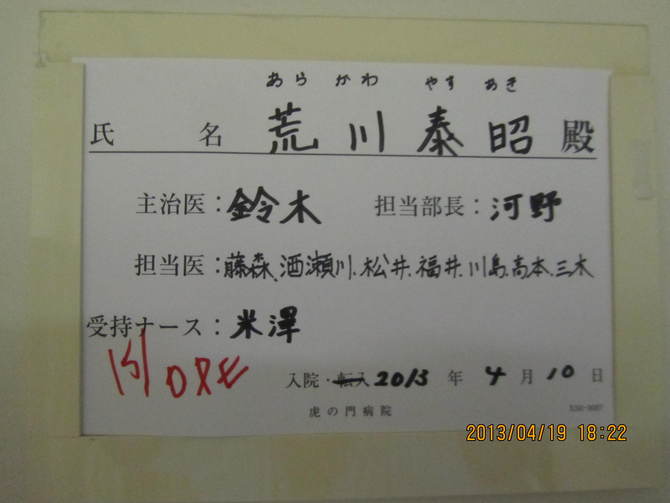 あら かわ やす あき
氏 名 荒川泰昭 殿
主治医：鈴木 担当部長：河野
担当医：藤森、酒瀬川、松井、福井、川島、高本、三木
受持ナース：米澤
15/ OPE
入院・転入 2013 年 4 月 10 日
虎の門病院
2013/04/19 18:22